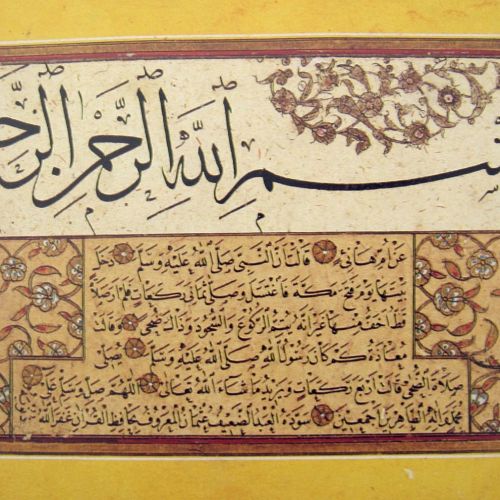 بسم الله الرحمن الرح
عن أم هانئ قالت إن النبي صلى الله عليه وسلم دخل
بيتها يوم فتح مكة فاغتسل وصلى ثماني ركعات فلم أر صلاة
قط أخف منها غير أنه يتم الركوع والسجود وذلك ضحى وقالت
معاذة كم كان رسول الله صلى الله عليه وسلم يصلي
صلاة الضحى قالت أربع ركعات ويزيد ما شاء الله تعالى اللهم صل وسلم على
محمد وآله الطاهرين أجمعين سوده العبد الضعيف عثمان المعروف بحافظ القرآن غفر الله